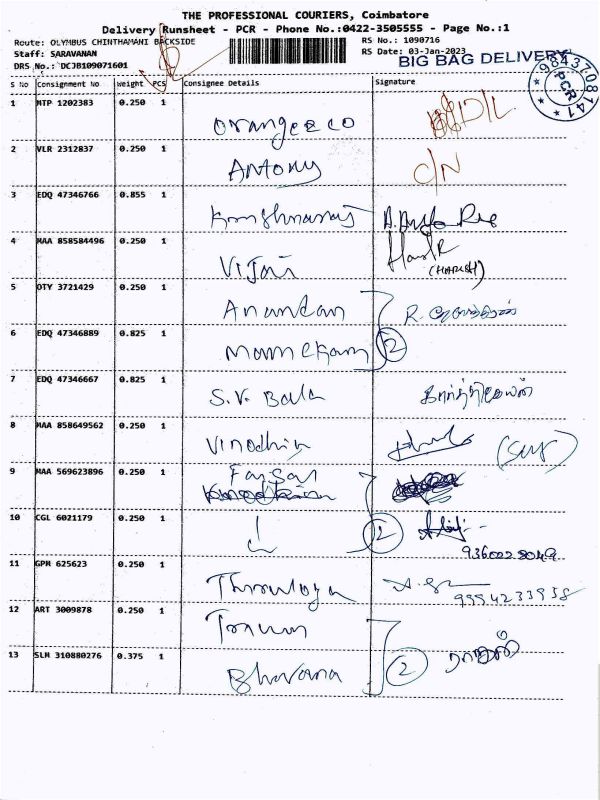 THE PROFESSIONAL COURIERS, Coimbatore
Delivery Runsheet - PCR - Phone No.:0422-3505555 - Page No.:1
Route: OLYMBUS CHINTHAMANI BACKSIDE RS No.: 1090716
Staff: SARAVANAN RS Date: 03-Jan-2023
DRS No.: DCJB109071601 BIG BAG DELIVERY
9843708141
PCR
S No Consignment No Weight PCS Consignee Details Signature
1 MTP 1202383 0.250 1 Orange & co D/L
2 VLR 2312837 0.250 1 Antony C/N
3 EDQ 47346766 0.855 1 Krishnaraj
4 MAA 858584496 0.250 1 Vijai (HARISH)
5 OTY 3721429 0.250 1 Anandan R.
6 EDQ 47346889 0.825 1 2
7 EDQ 47346667 0.825 1 S.V. Bala
8 MAA 858649562 0.250 1 Vinodhin
9 MAA 569623896 0.250 1
10 CGL 6021179 0.250 1 2
9360228049
11 GPM 625623 0.250 1
9994233938
12 ART 3009878 0.250 1
13 SLM 310880276 0.375 1 Bhavana 2